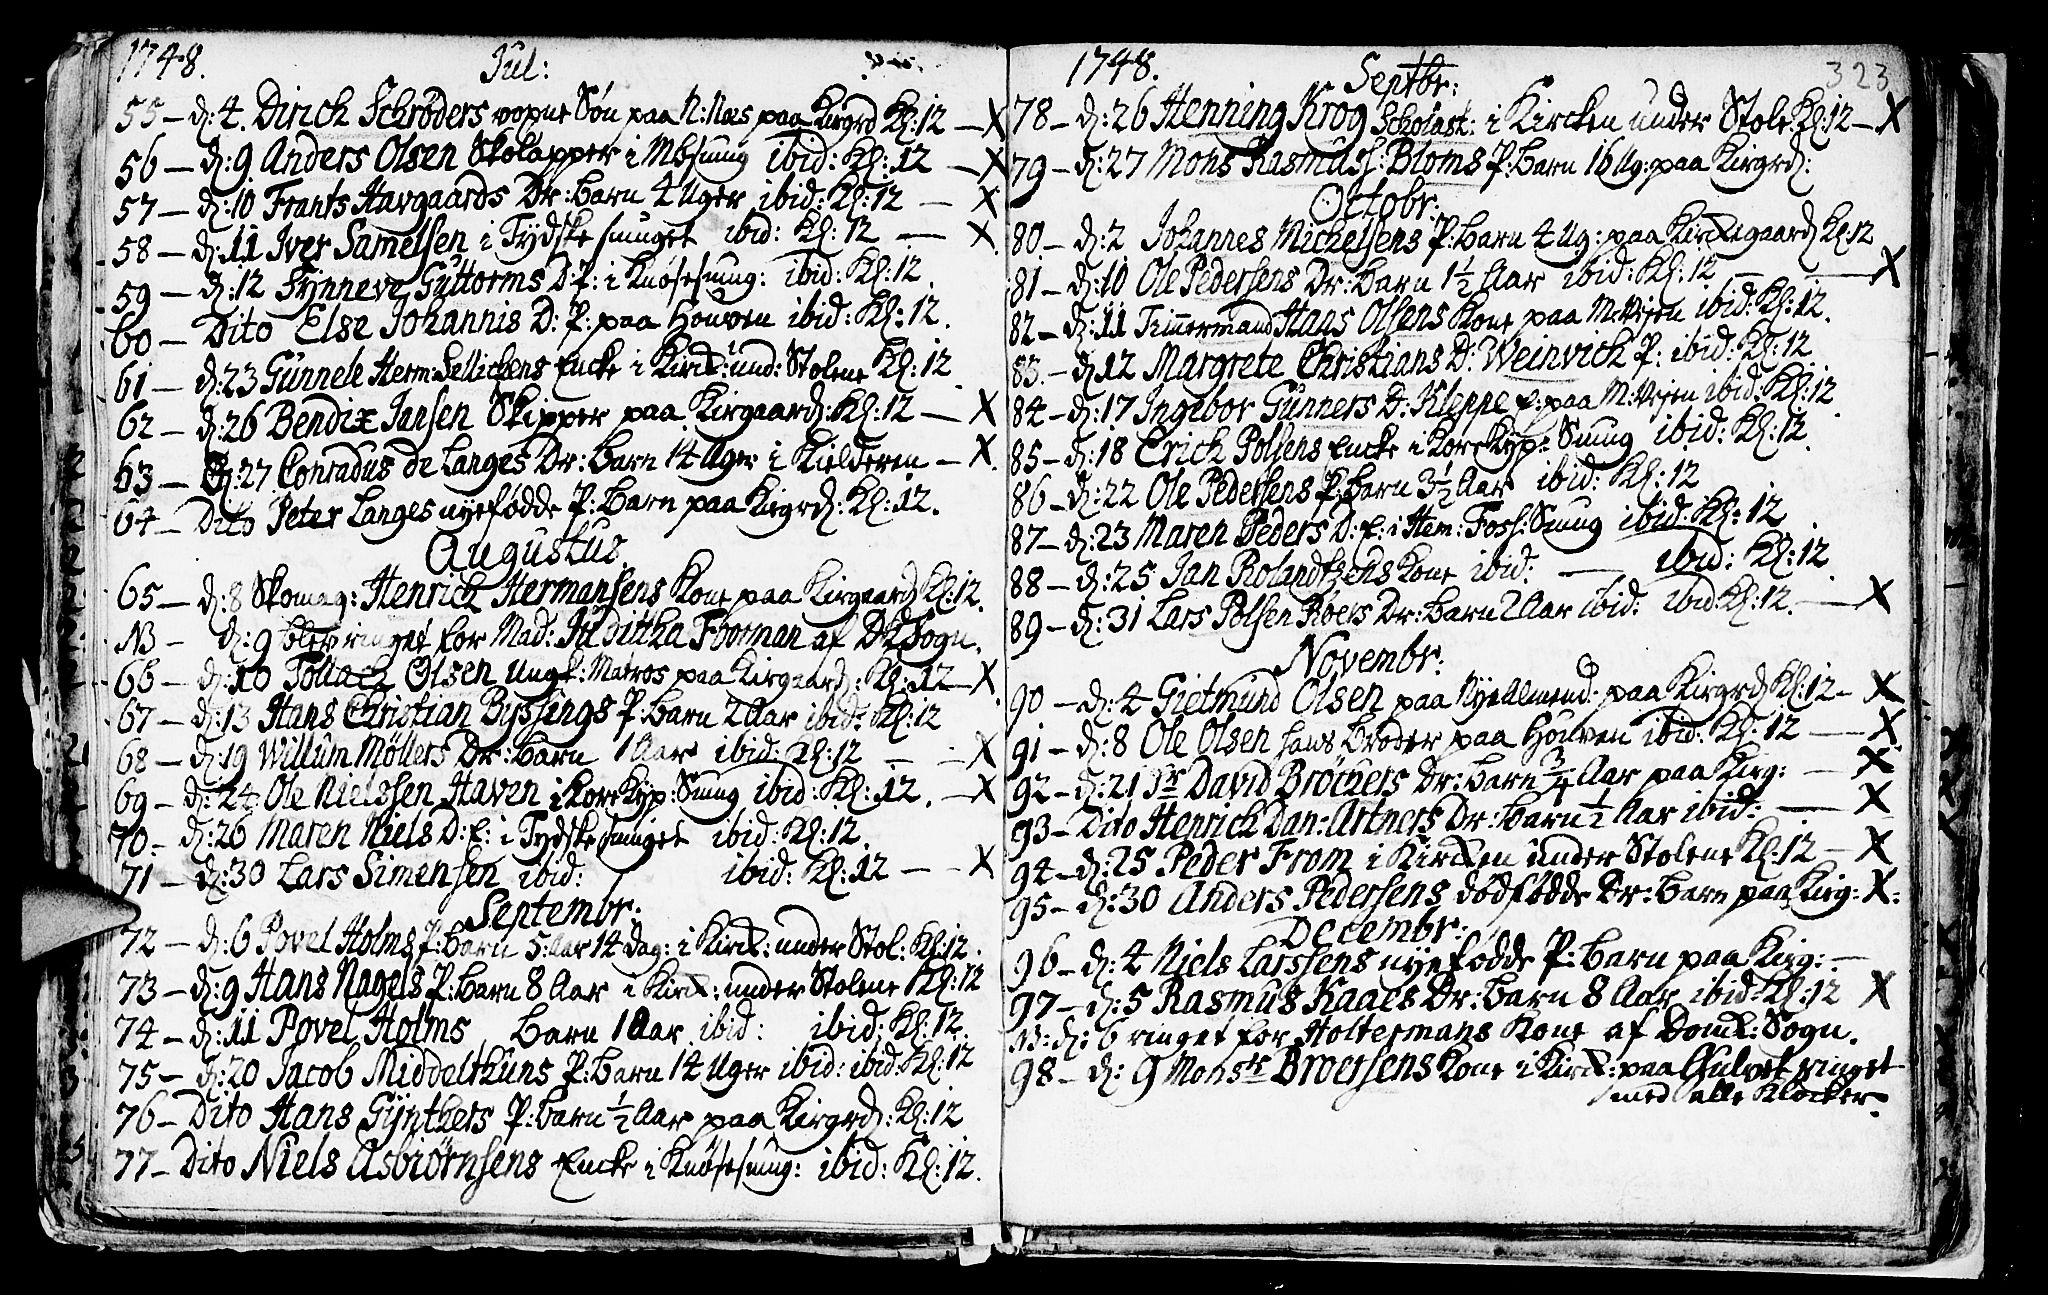 1748. Jul:
55 — d: 4. Dirich Schrøders voxne Søn paa N: Næs paa Kirgrd Kl: 12 — X
56 — d: 9 Anders Olsen Skolapper i Mbsmug ibid: Kl: 12 — X
57 — d: 10 Frants Havgaards Dr: barn 4 Uger ibid: Kl: 12 — X
58 — d: 11 Iver Samelsen i Tydske smuget ibid: Kl: 12 — X
59 — d: 12 Synneve Guttorms D: P: i Knøsesmug: ibid: Kl: 12.
60 — Dito Else Johannis D: P: paa Houven ibid: Kl: 12.
61 — d: 23 Gunnele Herm: Sellichens Encke i Kirck: und: Stolene Kl: 12
62 — d: 26 Bendix Jansen Skipper paa Kirgaard: Kl: 12 — X
63 — d: 27 Conradus de Langes Dr: barn 14 Uger i Kielderen — X
64 — Dito Peter Langes nyefødde P: barn paa Kirgrd: Kl: 12.
Augustus
65 — d: 8 Skomag: Henrich Hermansens Kone paa Kirgaard Kl: 12.
NB — d: 9 blev ringet for Mad: Juditha Forman af DK Sogn.
66 — d: 10 Tollach Olsen ungk: Matros paa Kirgaard: Kl: 12 — X
67 — d: 13 Hans Christian Byssings P: barn 2 Aar ibid: Kl: 12
68 — d: 19 Willum Möllers Dr: barn 1 Aar ibid: Kl: 12 — X
69 — d: 24 Ole Nielssen Haven i KorsKyp: Smug ibid: Kl: 12. — X
70 — d: 26 Maren Niels D: E: i Tydske smuget ibid: Kl: 12.
71 — d: 30 Lars Simensen ibid: ibid: Kl: 12 — X
Septembr:
72 — d: 6 Povel Holms P: barn 5 Aar 14 Dag: i Kirck: under Stol: Kl: 12.
73 — d: 9 Hans Nagels P: barn 8 Aar i Kirck: under Stolene Kl: 12
74 — d: 11 Povel Holms barn 1 Aar ibid: ibid: Kl: 12.
75 — d: 20 Jacob Middelthuns P: barn 14 Uger ibid: ibid: Kl: 12
76 — Dito Hans Gÿnthers P: barn ½ Aar paa Kirgrd: Kl: 12
77 — Dito Niels Asbiørnsens Encke i Knøsesmug: ibid: Kl: 12.
1748. Septbr: 323
78 — d: 26 Henning Krog Scholast: i Kircken under Stole: Kl: 12 — X
79 — d: 27 Mons Rasmus: Bloms P: barn 16 Ug: paa Kirgrd:
Octobr:
80 — d: 2 Johannes Michelsens P: barn 4 Ug: paa Kirckegaard Kl: 12
81 — d: 10 Ole Pedersens Dr: barn 1½ Aar ibid: Kl: 12 — X
82 — d: 11 Timermand Hans Olsens Kone paa M: Veien ibid: Kl: 12.
83 — d: 12 Margrete Christians D: Weinvich P: ibid: Kl: 12
84 — d: 17 Ingebor Gunners D: Kleppe E: paa M: Veien ibid: Kl: 12
85 — d: 18 Erich Polsens Encke i KorsKyp: Smug ibid: Kl: 12.
86 — d: 22 Ole Pedersens P: barn 3½ Aar ibid: Kl: 12
87 — d: 23 Maren Peders D: E: i Hem: Foss: Smug ibid: Kl: 12
88 — d: 25 Jan Rolandtzens Kone ibid: — ibid: Kl: 12
89 — d: 31 Lars Polsen Roers Dr: barn 2 Aar ibid: ibid: Kl: 12. — X
Novembr:
90 — d: 4 Gietmund Olsen paa Nye Almend: paa Kirgrd Kl: 12 — X
91 — d: 8 Ole Olsen hans broder paa Houven ibid: Kl: 12 — X
92 — d: 21 Sr David Bröchers Dr: barn ¾ Aar paa Kirg: — X
93 — Dito Henrich Dan: Artners Dr: barn ½ Aar ibid: — X
94 — d: 25 Peder From i Kircken under Stolene Kl: 12 — X
95 — d: 30 Anders Pedersens dødfødde Dr: barn paa Kirg: X
Decembr:
96 — d: 4 Niels Larssens nyefødde P: barn paa Kirg: —
97 — d: 5 Rasmus Kaaes Dr: barn 8 Aar ibid: Kl: 12 X
NB: d: 6 ringet for Holtermans Kone af Domk: Sogn.
98 — d: 9 Monsr Broersens Kone i Kirck: paa Gulvet ringet
med alle Klocker.